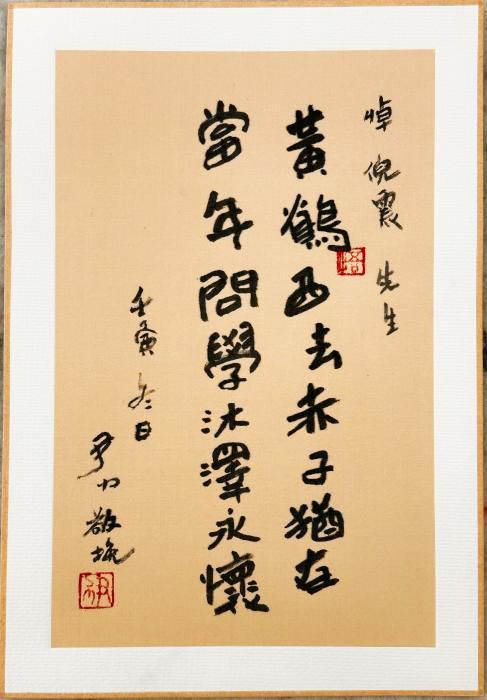 悼 倪震 先生
黃鶴西去赤子猶在
當年問學沐澤永懷
壬寅冬日
尹 敬挽